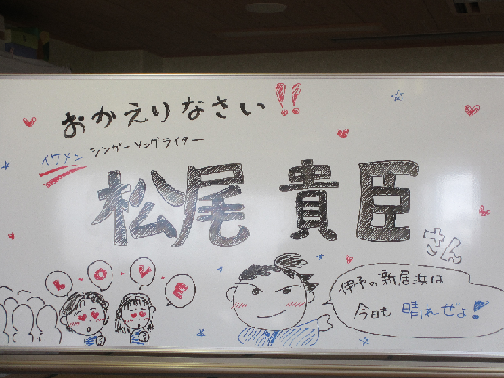 おかえりなさい!!
イケメン シンガーソングライター
松尾 貴臣
さん
LOVE
伊予の新居浜は
今日も 晴れぜよ!